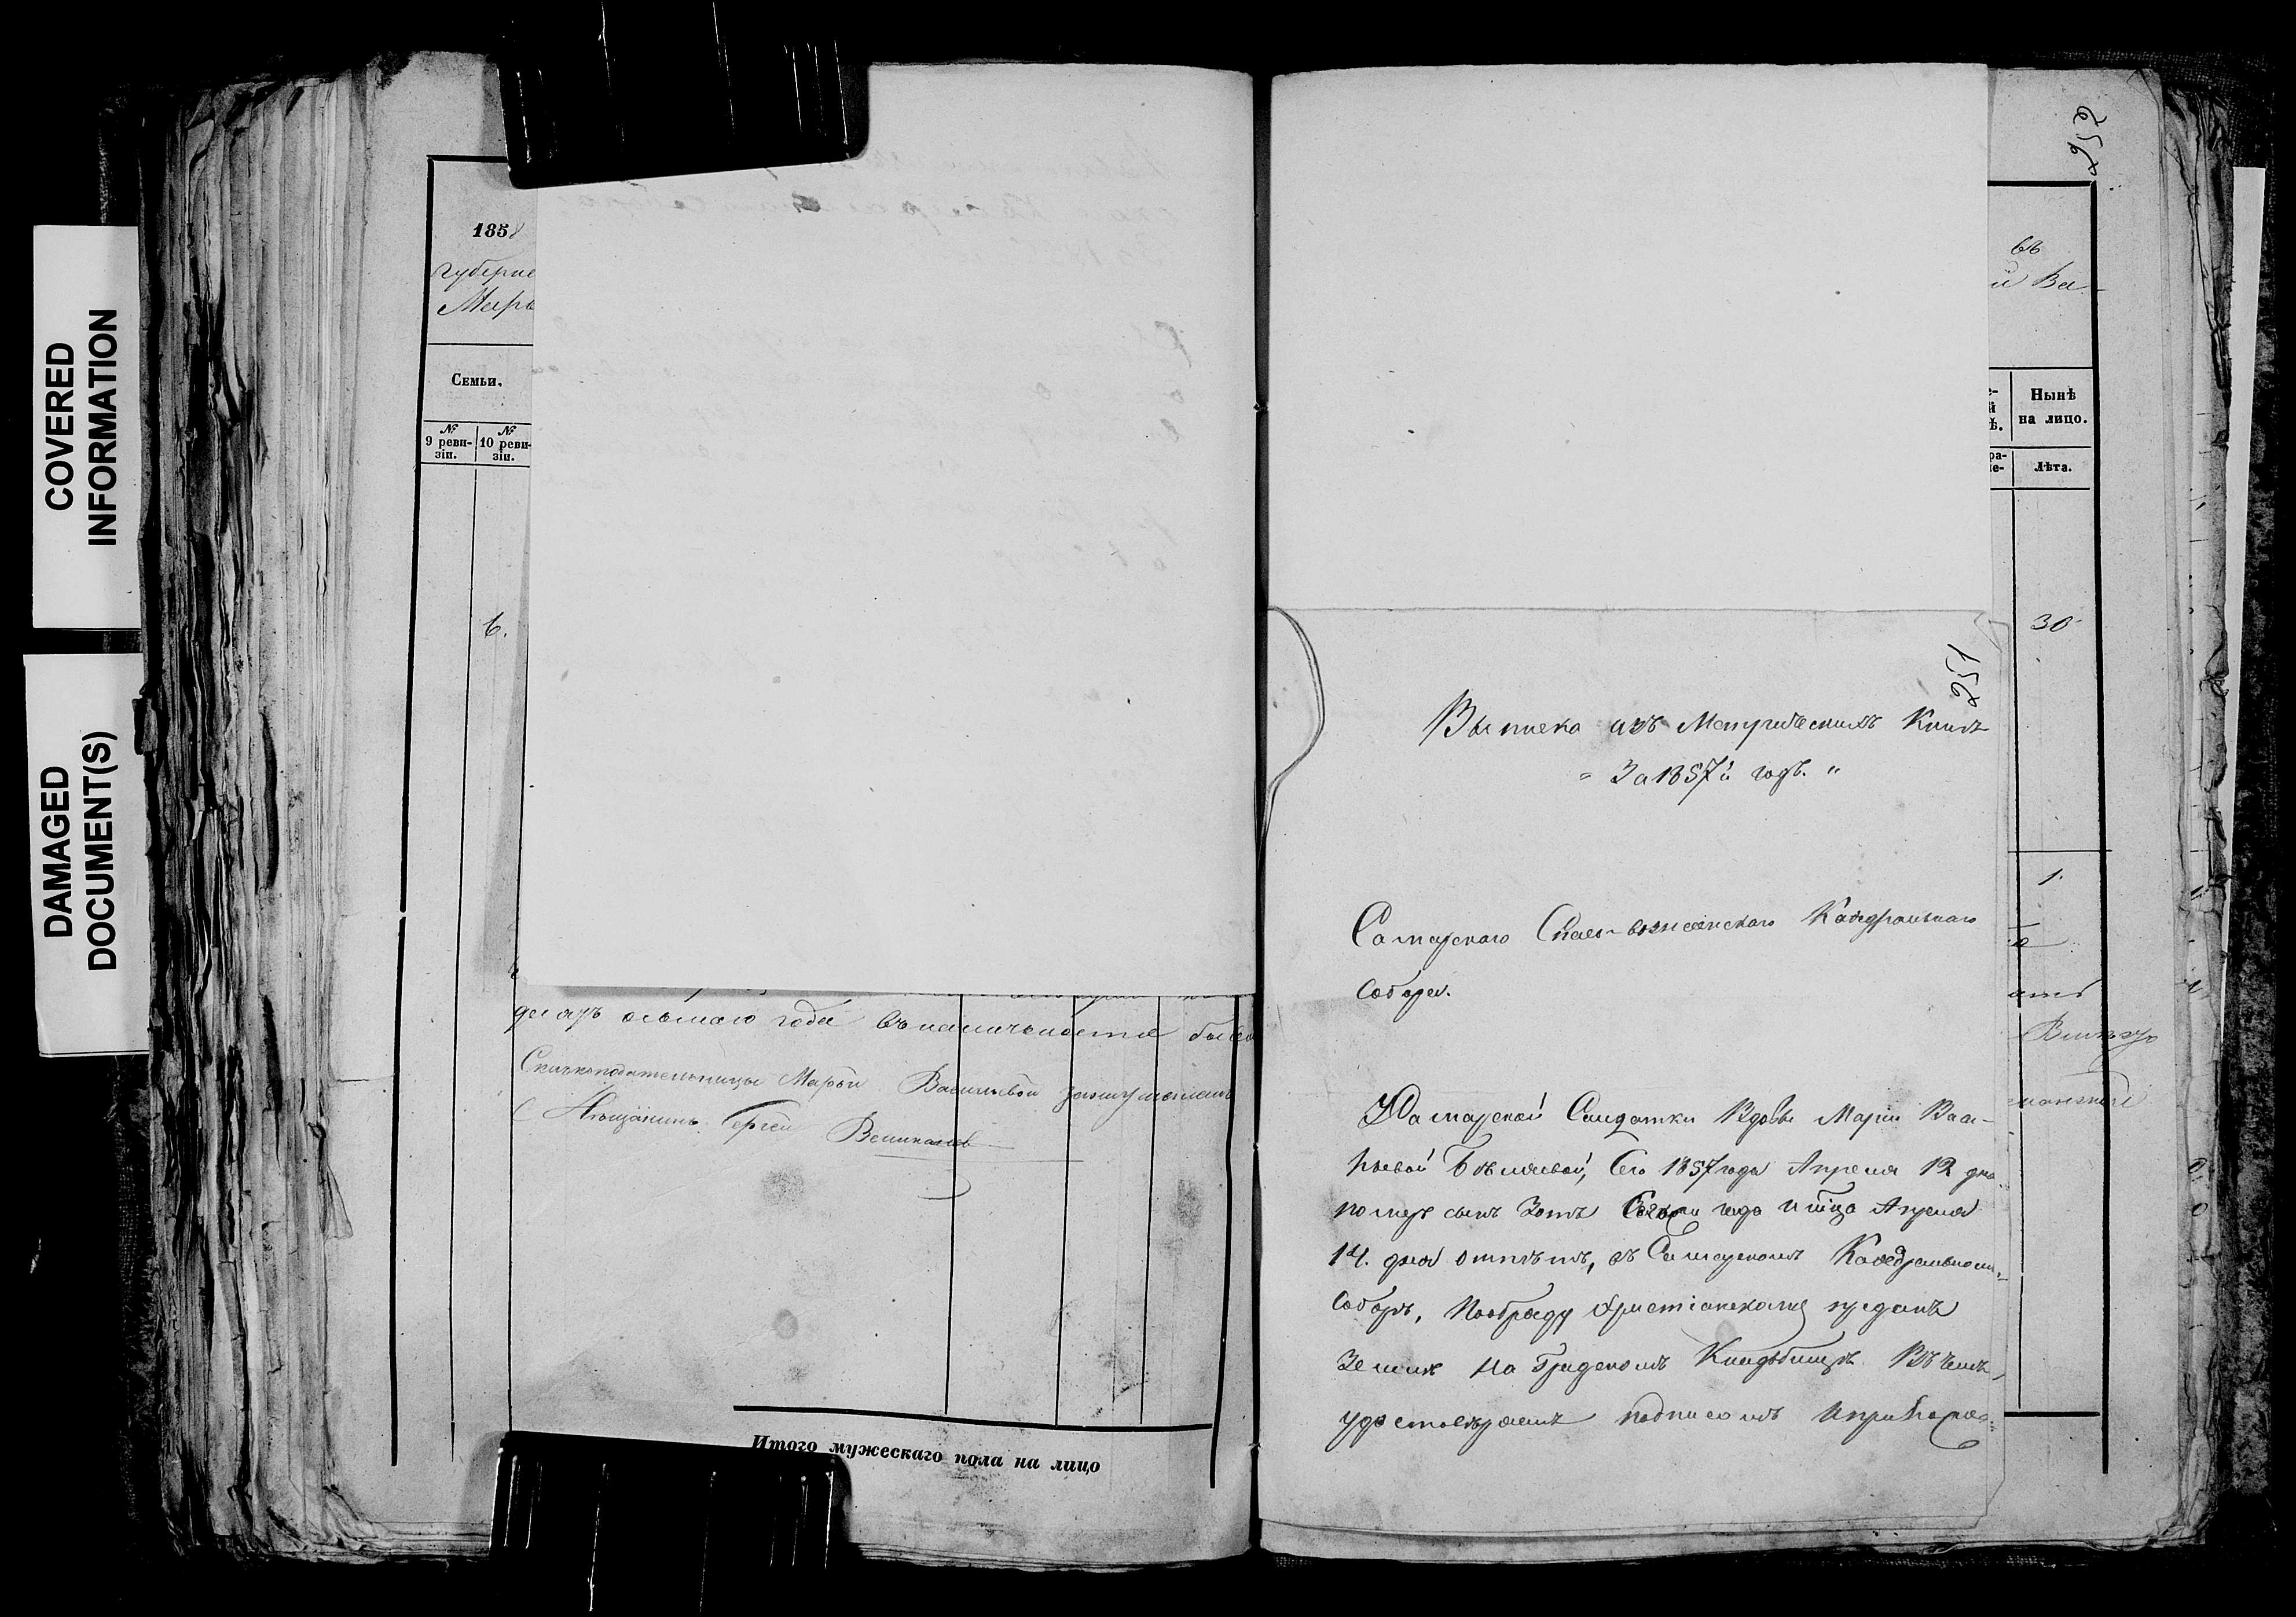 COVERED
INFORMATION
DAMAGED
DOCUMENT(S)
1858
губерні
Марь
Семьи.
№
9 реви-
зіи.
№
10 реви-
зіи.
6.
десятъ осьмаго года въ наличьности
Скаскоподательницы Марьи Васильевой
Мѣщанинъ Сергей
Итого мужескаго пола на лицо
252
въ
й Ва-
Нынѣ
на лицо.
Лѣта.
30
1.
251
Выписка изъ Метрическихъ Книгъ
За 1857й годъ.
Самарскаго Спасо-вознесенскаго Кафедральнаго
Собора.
У Самарской Солдатки Вдовы Маріи Васи-
льевой Сего 1857 года Апреля 12 дня
померъ сынъ Зотъ года Апреля
14. дня отпѣтъ, въ Самарскомъ Кафедральномъ
Соборѣ, Пообряду Христіанскому преданъ
Землѣ На Градскомъ Кладбищѣ Въ чемъ
удостовѣряемъ подписомъ